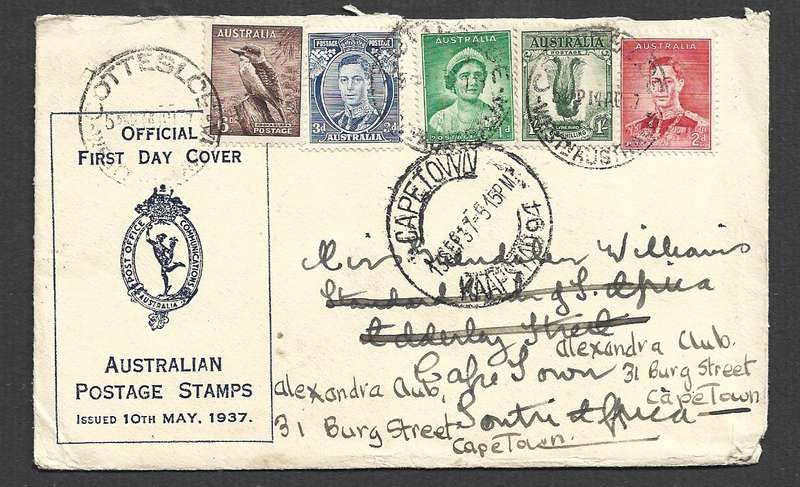 AUSTRALIA
6D. POSTAGE
POSTAGE POSTAGE
3d 3d
AUSTRALIA
AUSTRALIA
POSTAGE 1d
AUSTRALIA
POSTAGE
1/- SHILLING 1/-
AUSTRALIA
2d
COTTESLOE
COTTESLOE
WEST AUSTRALIA
OFFICIAL
FIRST DAY COVER
POST OFFICE COMMUNICATIONS
AUSTRALIA
AUSTRALIAN
POSTAGE STAMPS
ISSUED 10TH MAY, 1937.
CAPETOWN
13 SEP 37 - 5 15 PM
KAAPSTAD
Miss Williams
Standard Bank of S. Africa
Adderley Street
Cape Town
South Africa
alexandra Club.
31 Burg Street
CapeTown
alexandra Club,
31 Burg Street
CapeTown.